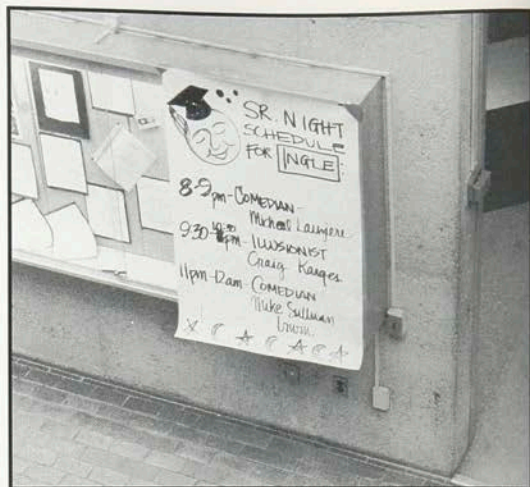 SR. NIGHT
SCHEDULE
FOR INGLE:
8-9pm-COMEDIAN-
Michael
9:30-10:30pm-ILLUSIONIST
Craig Karges
11pm-12am-COMEDIAN
Mike Sullivan
Irwin